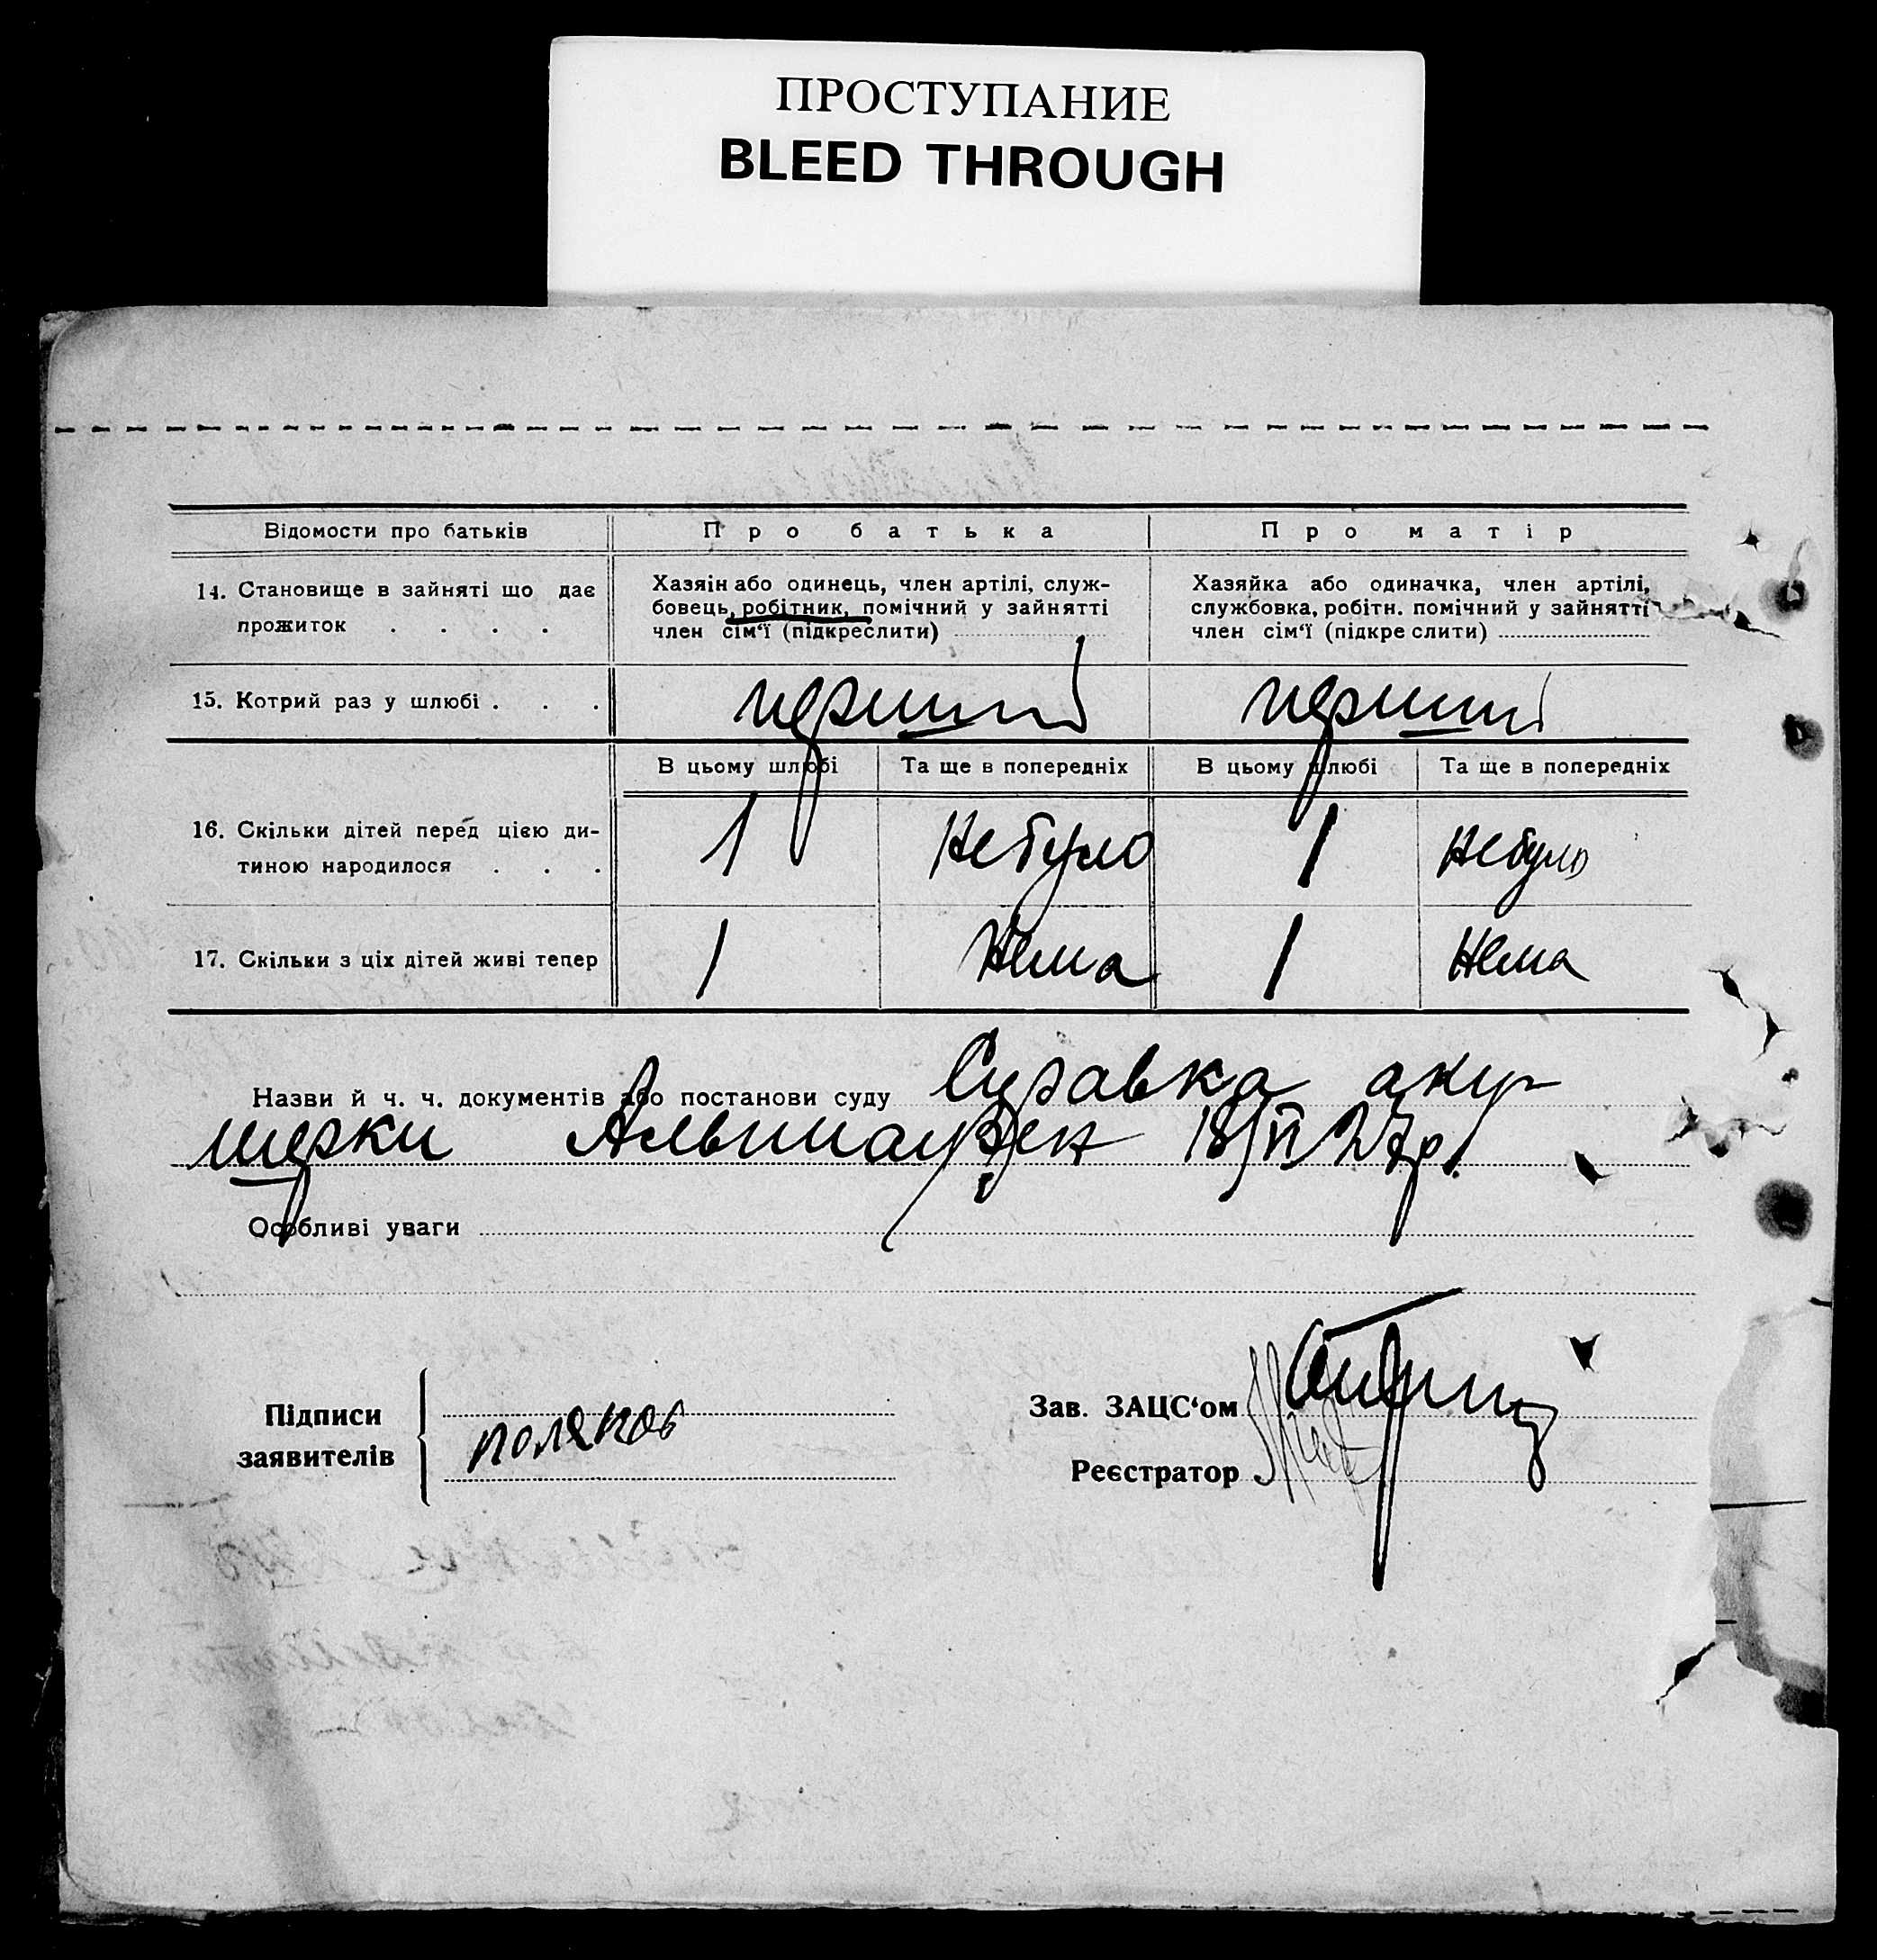 ПРОСТУПАНИЕ
BLEED THROUGH
Відомости про батьків Про батька Про матір
14. Становище в зайняті що дає прожиток . . . .
Хазяін або одинець, член артілі, служ-
бовець, робітник, помічний у зайнятті
член сім‘ї (підкреслити)
Хазяйка або одиначка, член артілі,
службовка, робітн. помічний у зайнятті
член сім‘ї (підкре слити)
15. Котрий раз у шлюбі . . . перший перший
В цьому шлюбі Та ще в попередніх В цьому шлюбі Та ще в попередніх
16. Скільки дітей перед цією ди-
тиною народилося . . . 1 Небуло 1 Небуло
17. Скільки з ціх дітей живі тепер 1 Нема 1 Нема
Назви й ч. ч. документів або постанови суду Справка аку-
шерки 18/VI 27р.
Особливі уваги
Підписи
заявителів
Поляков
Зав. ЗАЦС‘ом
Реєстратор